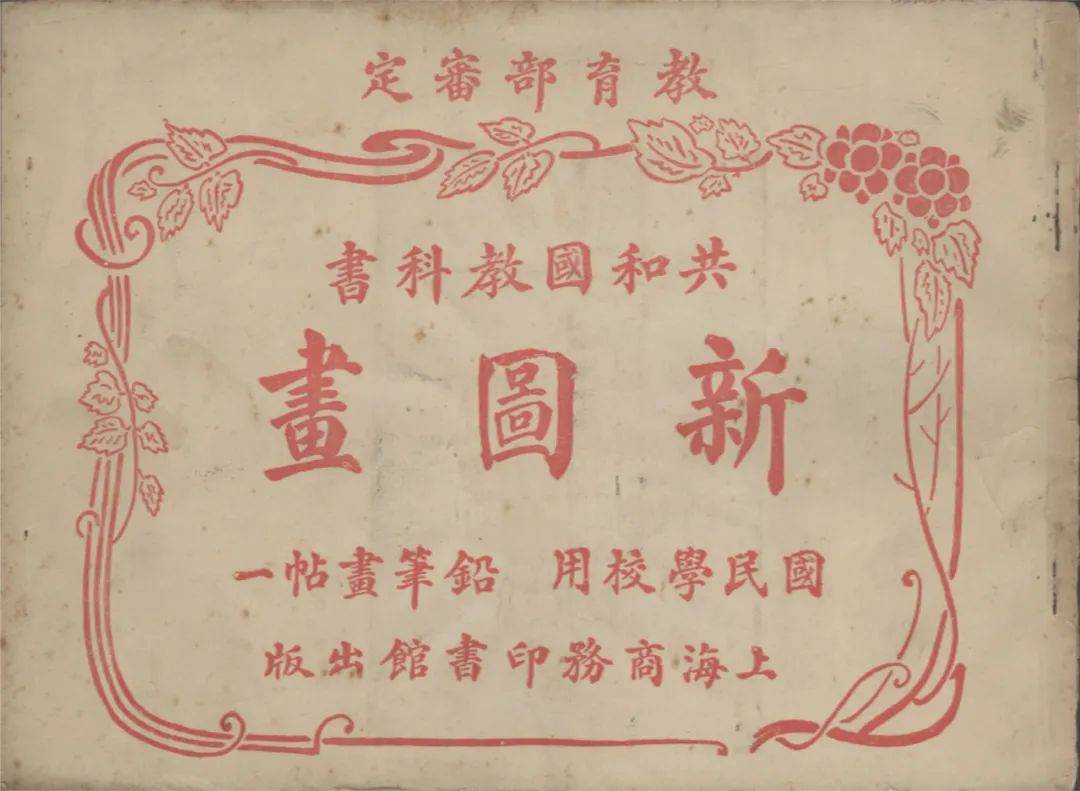 教育部審定
共和國教科書
新圖畫
國民學校用 鉛筆畫帖一
上海商務印書館出版